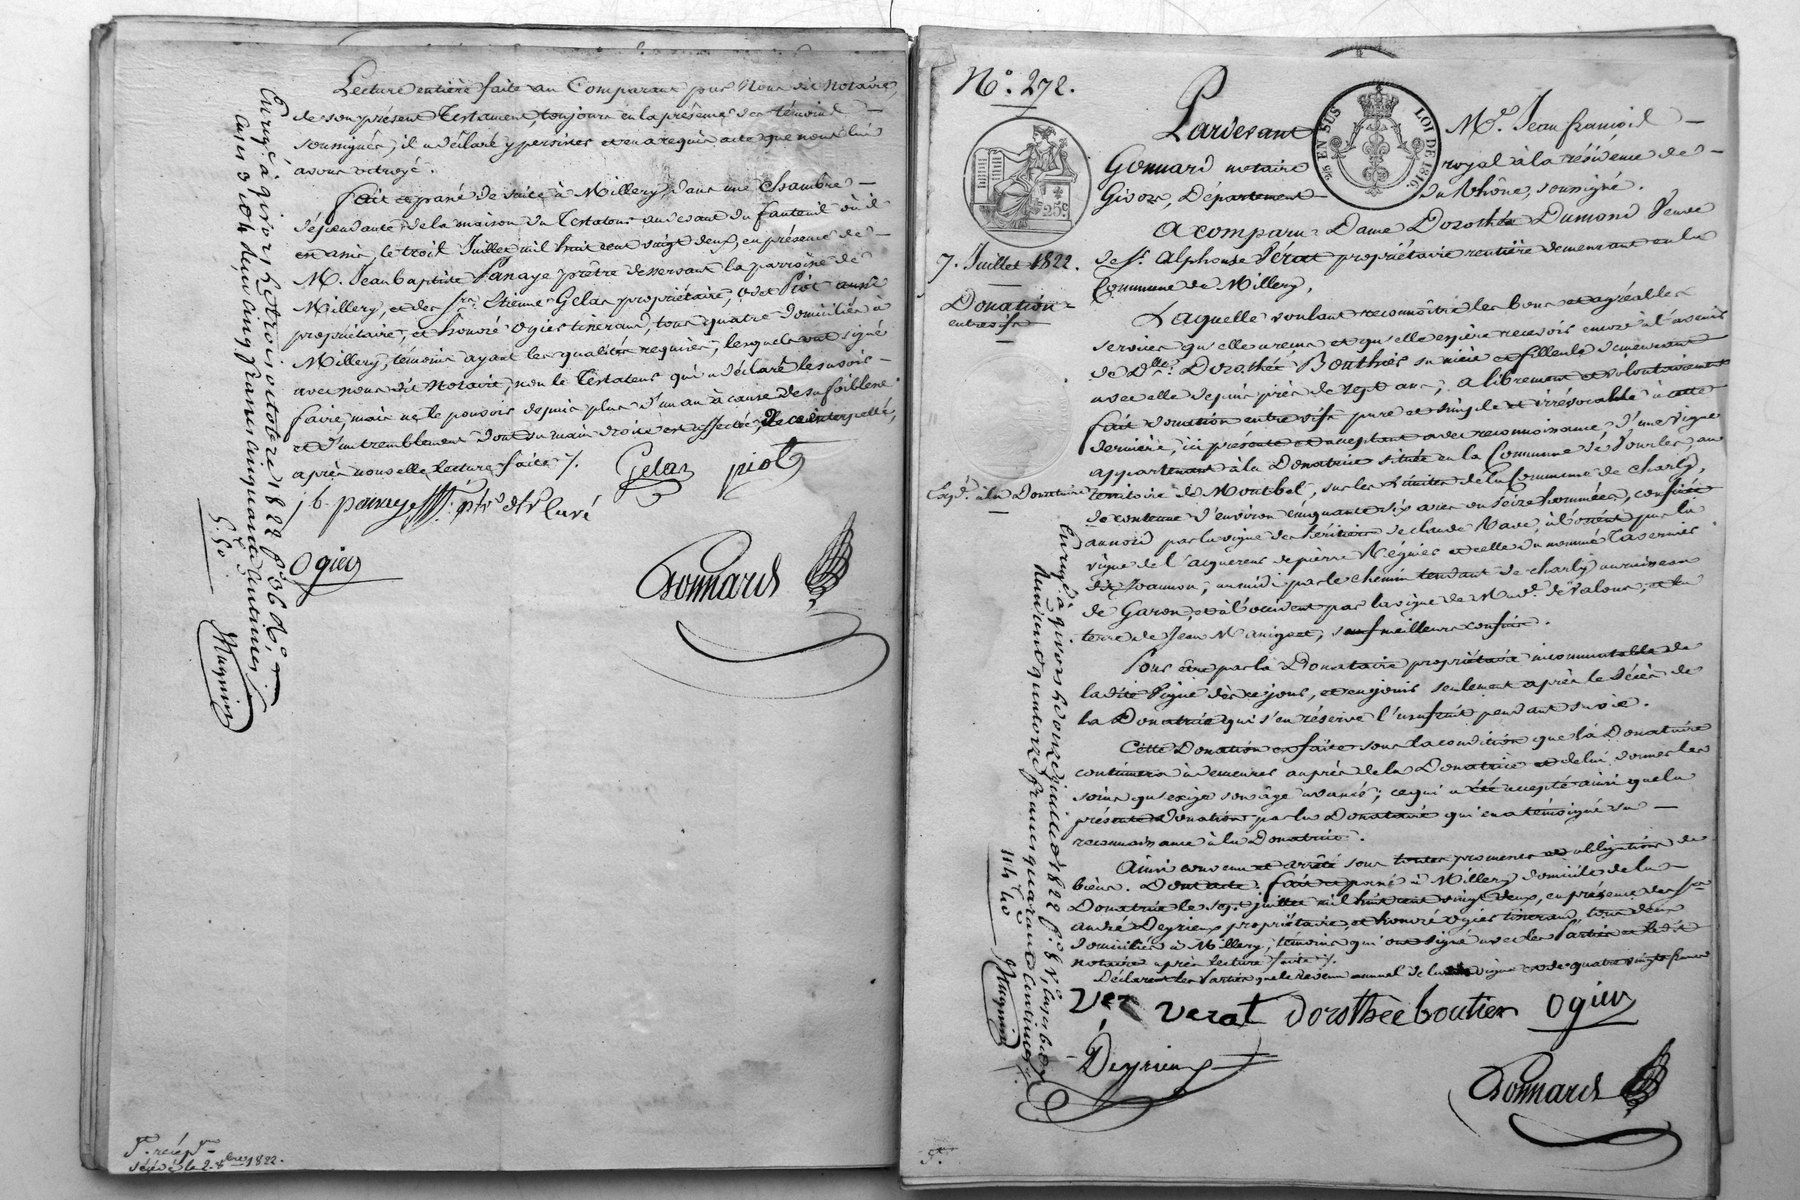 Lecture entière faite au Comparant par Nous dit Notaire,
de son présent Testament, toujours en la présence des témoins
soussignés, il a déclaré y persister et en a requis acte que nous lui
avons octroyé.
Fait et passé de suite à Millery, dans une Chambre
dépendante de la maison du Testateur au devant du fauteuil où il
est assis, le trois Juillet mil huit cent vingt deux, en présence de
M. Jean baptiste Panaye prêtre desservant la parroisse de
Millery, et des Srs. Etienne Gelas propriétaire, Piot aussi
propriétaire, et honoré Ogier tisserand, tous quatre domiciliés à
Millery, témoins ayant les qualités requises, lesquels ont signé
avec nous dit Notaire, non le Testateur qui a déclaré le savoir
faire, mais ne le pouvoir depuis plus d'un an à cause de sa foiblesse
et d'un tremblement dont sa main droite est affectée, de ce interpellé,
après nouvelle lecture faite /.
Gelas piot
j b panaye ptre curé
Ogier
Gonnard
Enregé. à givors le trois octobre 1822 fo. 36
cases 3 et 4 deux cinq francs cinquante centimes
5. 50
Magnin
1822.
No. 272.
7. Juillet 1822.
Donation
entrevifs
25c
EN SUS
LOI DE 1816
Pardevant Me. Jean françois
Gonnard notaire royal à la résidence de
Givors, Département du Rhône, soussigné.
A comparu Dame Dorothée Dumond Veuve
de Sr. Alphonse Vérat propriétaire rentière demeurant en la
Commune de Millery,
Laquelle voulant reconnoître les bons et agréables
services qu'elle a reçus et qu'elle espère recevoir encore à l'avenir
de Dlle. Dorothée Bouthier sa nièce et filleule demeurant
avec elle depuis près de sept ans, a librement et volontairement
fait donation entre vifs pure et simple et irrévocable à cette
dernière, ici présente et acceptant avec reconnoissance, d'une vigne
appartenant à la Donatrice située en la Commune de Vourles, au
territoire de Montbel, sur les limites de la Commune de Charly,
de contenue d'environ cinquante six ares ou seize hommées, confinée
au nord par la vigne des héritiers de claude Rave, à l'orient par la
vigne de l'acquereur de pierre Regnier et celle du nommé Tavernier
au midi par le chemin tendant de charly au ruisseau
de Garon, et à l'occident par la vigne de Mad. de Valous, et la
terre de Jean Maniquet, sauf meilleurs confins.
Pour être par la Donataire propriétaire incommutable de
la dite Vigne dès ce jour, et en jouir seulement après le décès de
la Donatrice qui s'en réserve l'usufruit pendant sa vie.
Cette Donation est faite sous la condition que la Donataire
continuera à demeurer auprès de la Donatrice et de lui donner les
soins qu'exige son âge avancé; ce qui a été accepté ainsi que la
présente Donation par la Donataire qui en a témoigné sa
reconnoissance à la Donatrice.
Ainsi convenu et arrêté sous toutes promesses et obligations de
biens. Dont acte. fait et passé à Millery domicile de la
Donatrice le sept juillet mil huit cent vingt deux, en présence des Srs.
andré Deyrieux propriétaire, et honoré Ogier tisserand, tous deux
domiciliés à Millery, témoins qui ont signé avec les Parties et le dit
notaire après lecture faite /.
Déclarent les Parties que le Revenu annuel de la vigne est de quatre vingts francs
Ver Verat Dorothée boutier Ogier
Deyrieux
Gonnard
Enregé. à givors le douze juillet 1822 fo. 8
francs quarante centimes
Magnin